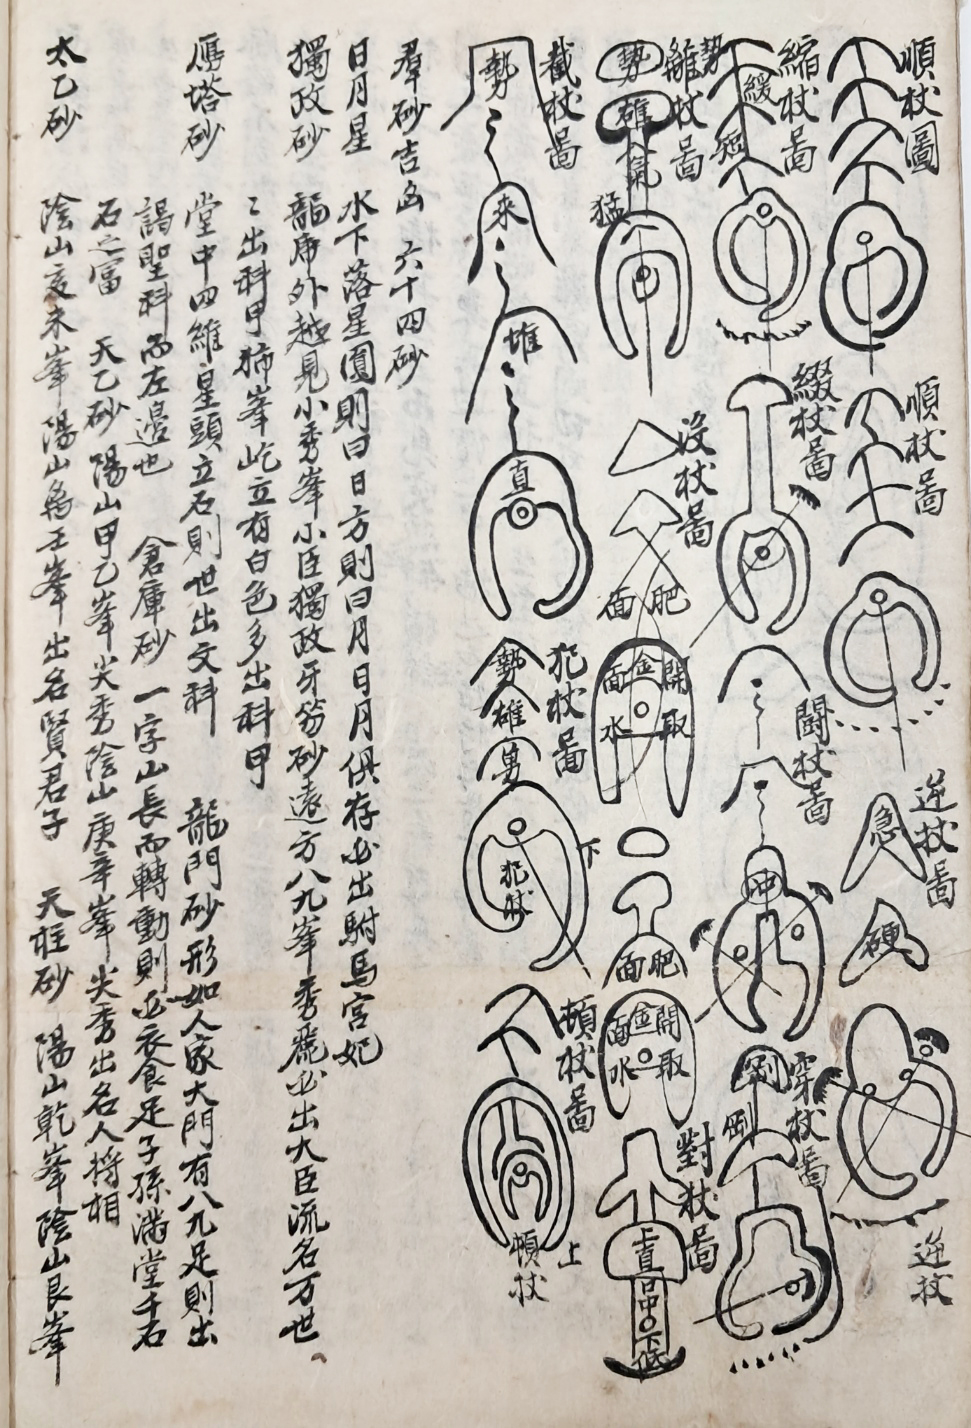 順杖圖
順杖啚
逆杖啚
急
硬
逆杖
縮杖啚
緩
短
綴杖啚
闘杖啚
冲
穿杖啚
剛
剛
離杖啚
勢
勢
雄
氣
猛
沒杖啚
肥
面
開金面
取水
肥
面
開金面
取水
對杖啚
上直
中
下低
截杖啚
勢
來
堆
直
犯杖啚
勢
雄
勇
犯杖
下
頓杖啚
頓杖
上
羣砂吉凶 六十四砂
日月星 水下落星圓則曰日方則曰月日月俱存必出駙馬宮妃
獨政砂 龍虎外越見小秀峯小臣獨政牙笏砂遠方八九峯秀飛必出大臣流名万世
〻出科甲 獅峯屹立有白色多出科甲
鴈塔砂 堂中四維皇頭立石則世出文科 龍門砂形如人家大門有八九足則出
謁聖科而左邊也 倉庫砂 一字山長而轉動則必衣食足子孫滿堂千石
石之富 天乙砂 陽山甲乙峯尖秀陰山庚辛峯尖秀出名人將相
太乙砂 陰山亥未峯陽山壬峯出名賢君子 天柱砂 陽山乾峯陰山艮峯